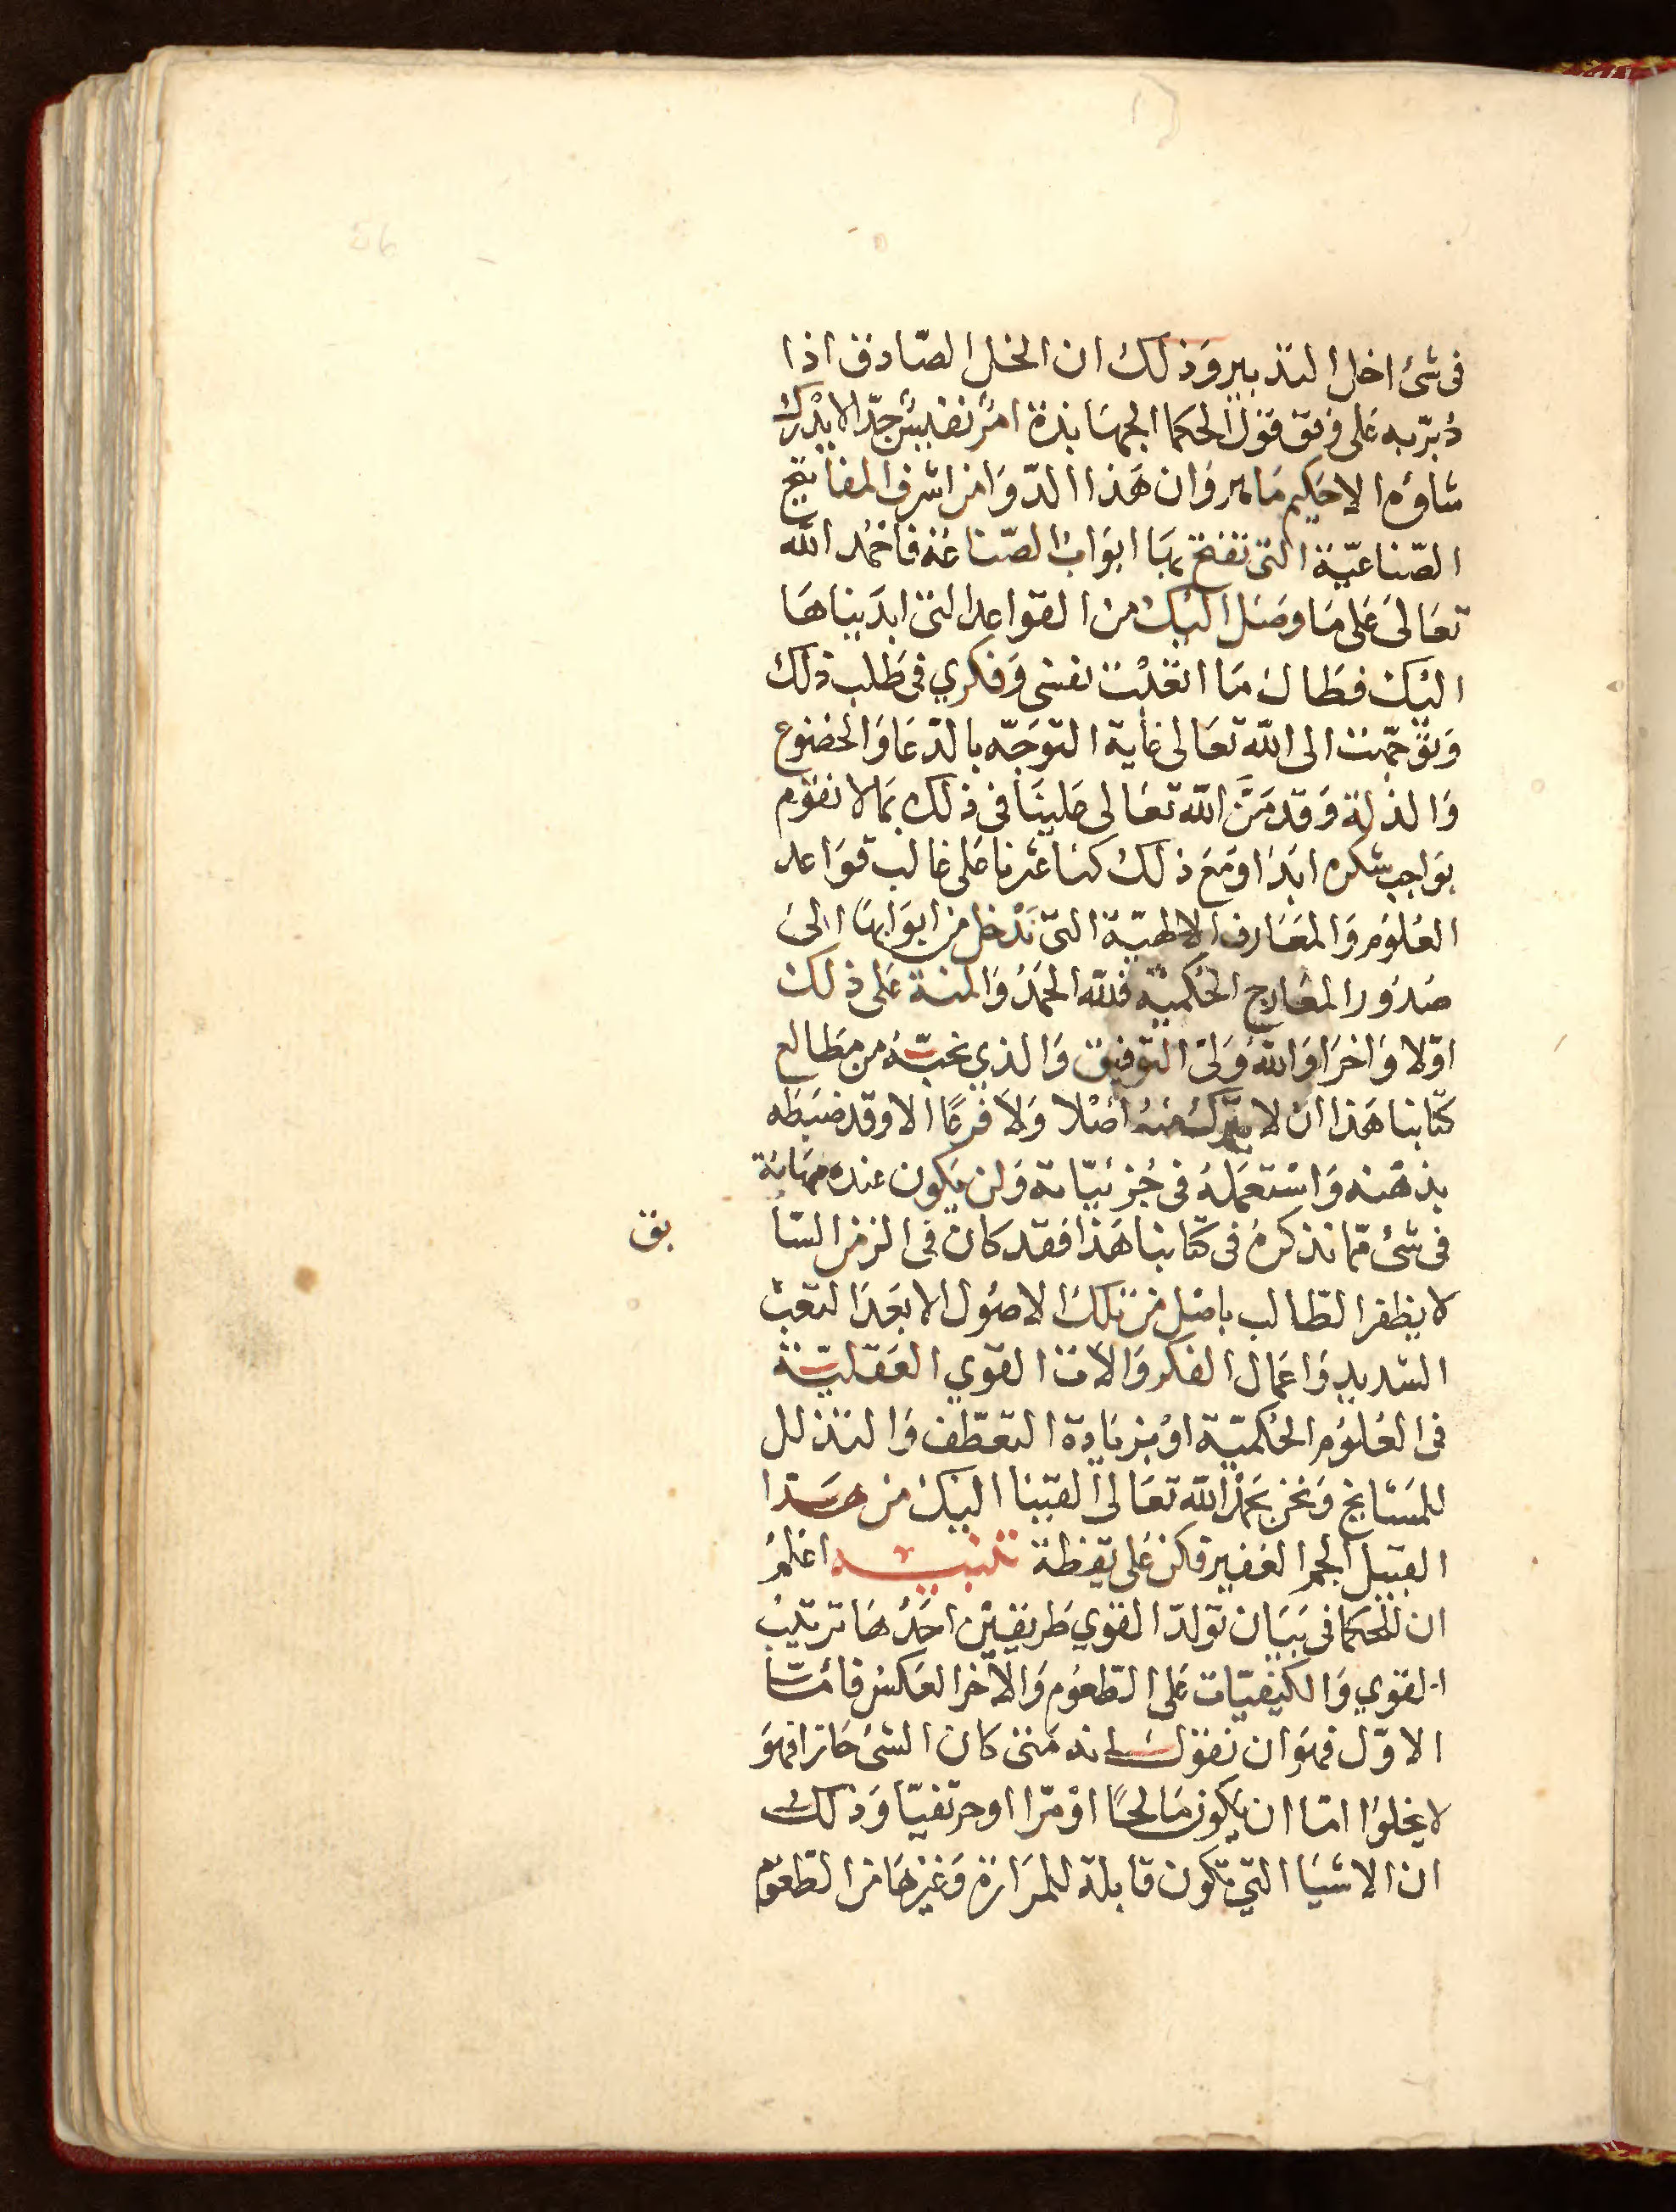 فى شئ اخل التدبير وذلك ان الخل الصّادق اذا
دُبّر به على وفق قول الحكما الجهابذة امرٌ نفيسٌ جدّا لا يدْرك
شاوه الا حكيم ماهر وان هذا الدّوا من اشرف المفاتيح
الصّناعيّة التى تفتح بها ابواب الصّناعة فاحمُد الله
تعَالىَ عَلى مَا وصَل اليك من القواعد التى ابديناها
اليك فطال مَا اتعبْت نفسى وَفكري فى طَلب ذلك
وَتوَجّهت الى الله تعَالى غاية التوجّه بالدّعا وَالخضوع
وَالذلة وَقد مَنَّ الله تعَالى علينا فى ذلك بما لا نقوم
بوَاجب شكره ابدَا ومَع ذلك كنا عثرنا عَلى غالب قوَاعد
العُلوُم وَالمعَارف الالهيّة التى نَدْخل من ابوَابهَا الىَ
صُدوُر المعَارج الحكمية فللّه الحمدُ وَالمنة عَلى ذلك
اوّلا وَاخرَا وَاللهُ وَلىّ التوفيق وَالذي نحبّهُ من مطالع
كتابنا هَذا ان لا يترك منهُ اصْلا وَلا فرعًا الا وقد ضبَطه
بذهْنه وَاسْتعمَلهُ فى جُزئيّاته وَلن يكون عنده مهَابة
فى شئ مّما نذكرهُ فى كتابنا هَذا فقد كان فى الزمن السّا
بق
لا يظفر الطّالب باصل من تلك الاصُول الا بعَد التعب
الشديد وَاعمَال الفكر وَالات القوي العَقليّة
فى العُلوُم الحُكميّة اوْ بزيَادة التعطّف وَالتذلل
للمَشايخ وَنحن بحَمد الله تعَالى القينا اليك من هَذا
القبيل الجم الغفير فكن عَلى يقظة تنبيه اعْلمُ
ان للحكما فى بيَان تولدّ القوي طَريقين احَدُهَا ترتيبُ
القوي وَالكيفيّات عَلى الطّعوم وَالاخر العَكس فامّا
الاوّل فهوَ ان نقول انه مَتى كان الشئ حَارا فهوَ
لا يخلوا امّا ان يكون مَالحًا اوْ مرّا او حرّيفيّا وَذلك
ان الاشيَا التى تكون قابلة للمَرَارة وَغيرهَا من الطّعوم